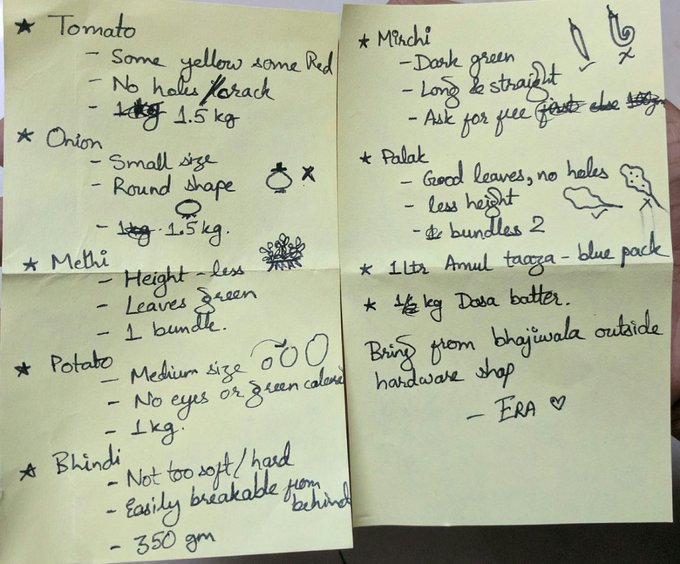 ★ Tomato
- Some yellow some Red
- No holes / crack
- 1.5 kg
★ Onion
- Small size
- Round shape
- 1.5 kg.
★ Methi
- Height - less
- Leaves green
- 1 bundle.
★ Potato
- Medium size
- No eyes or green colored
- 1 kg.
★ Bhindi
- Not too soft / hard
- Easily breakable from
behind
- 350 gm
★ Mirchi
- Dark green
- Long & straight
- Ask for free
★ Palak
- Good leaves, no holes
- less height
- bundles 2
★ 1 Ltr Amul taaza - blue pack
★ 1/2 kg Dosa batter.
Bring from bhajiwala outside
hardware shop
- ERA ♡